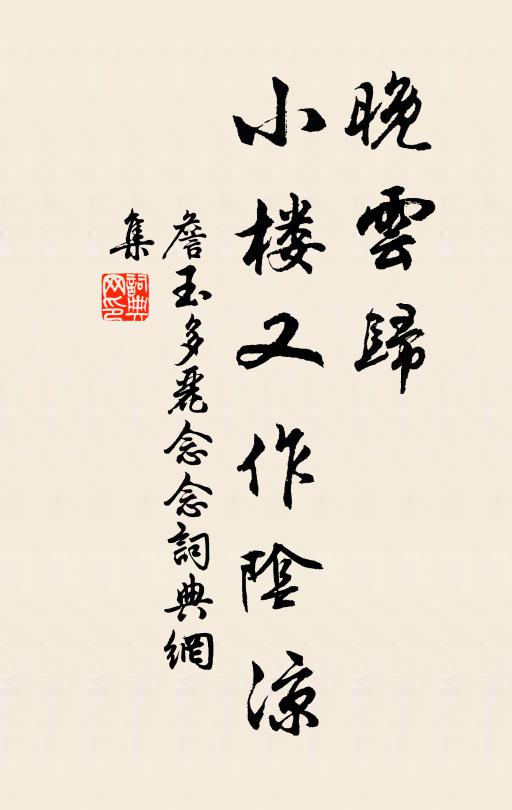 晚雲歸
小楼又作陰涼
詹玉多麗念念詞典網
集
詞典
网印